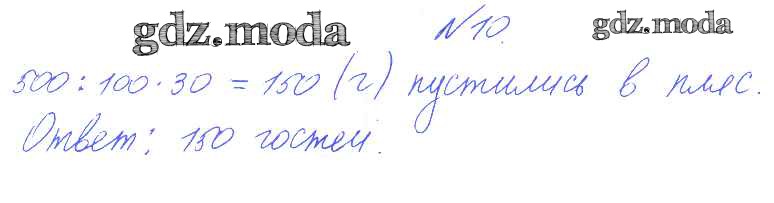 gdz.moda №10. gdz.moda
500 : 100 · 30 = 150 (г) пустились в пляс.
Ответ: 150 гостей.